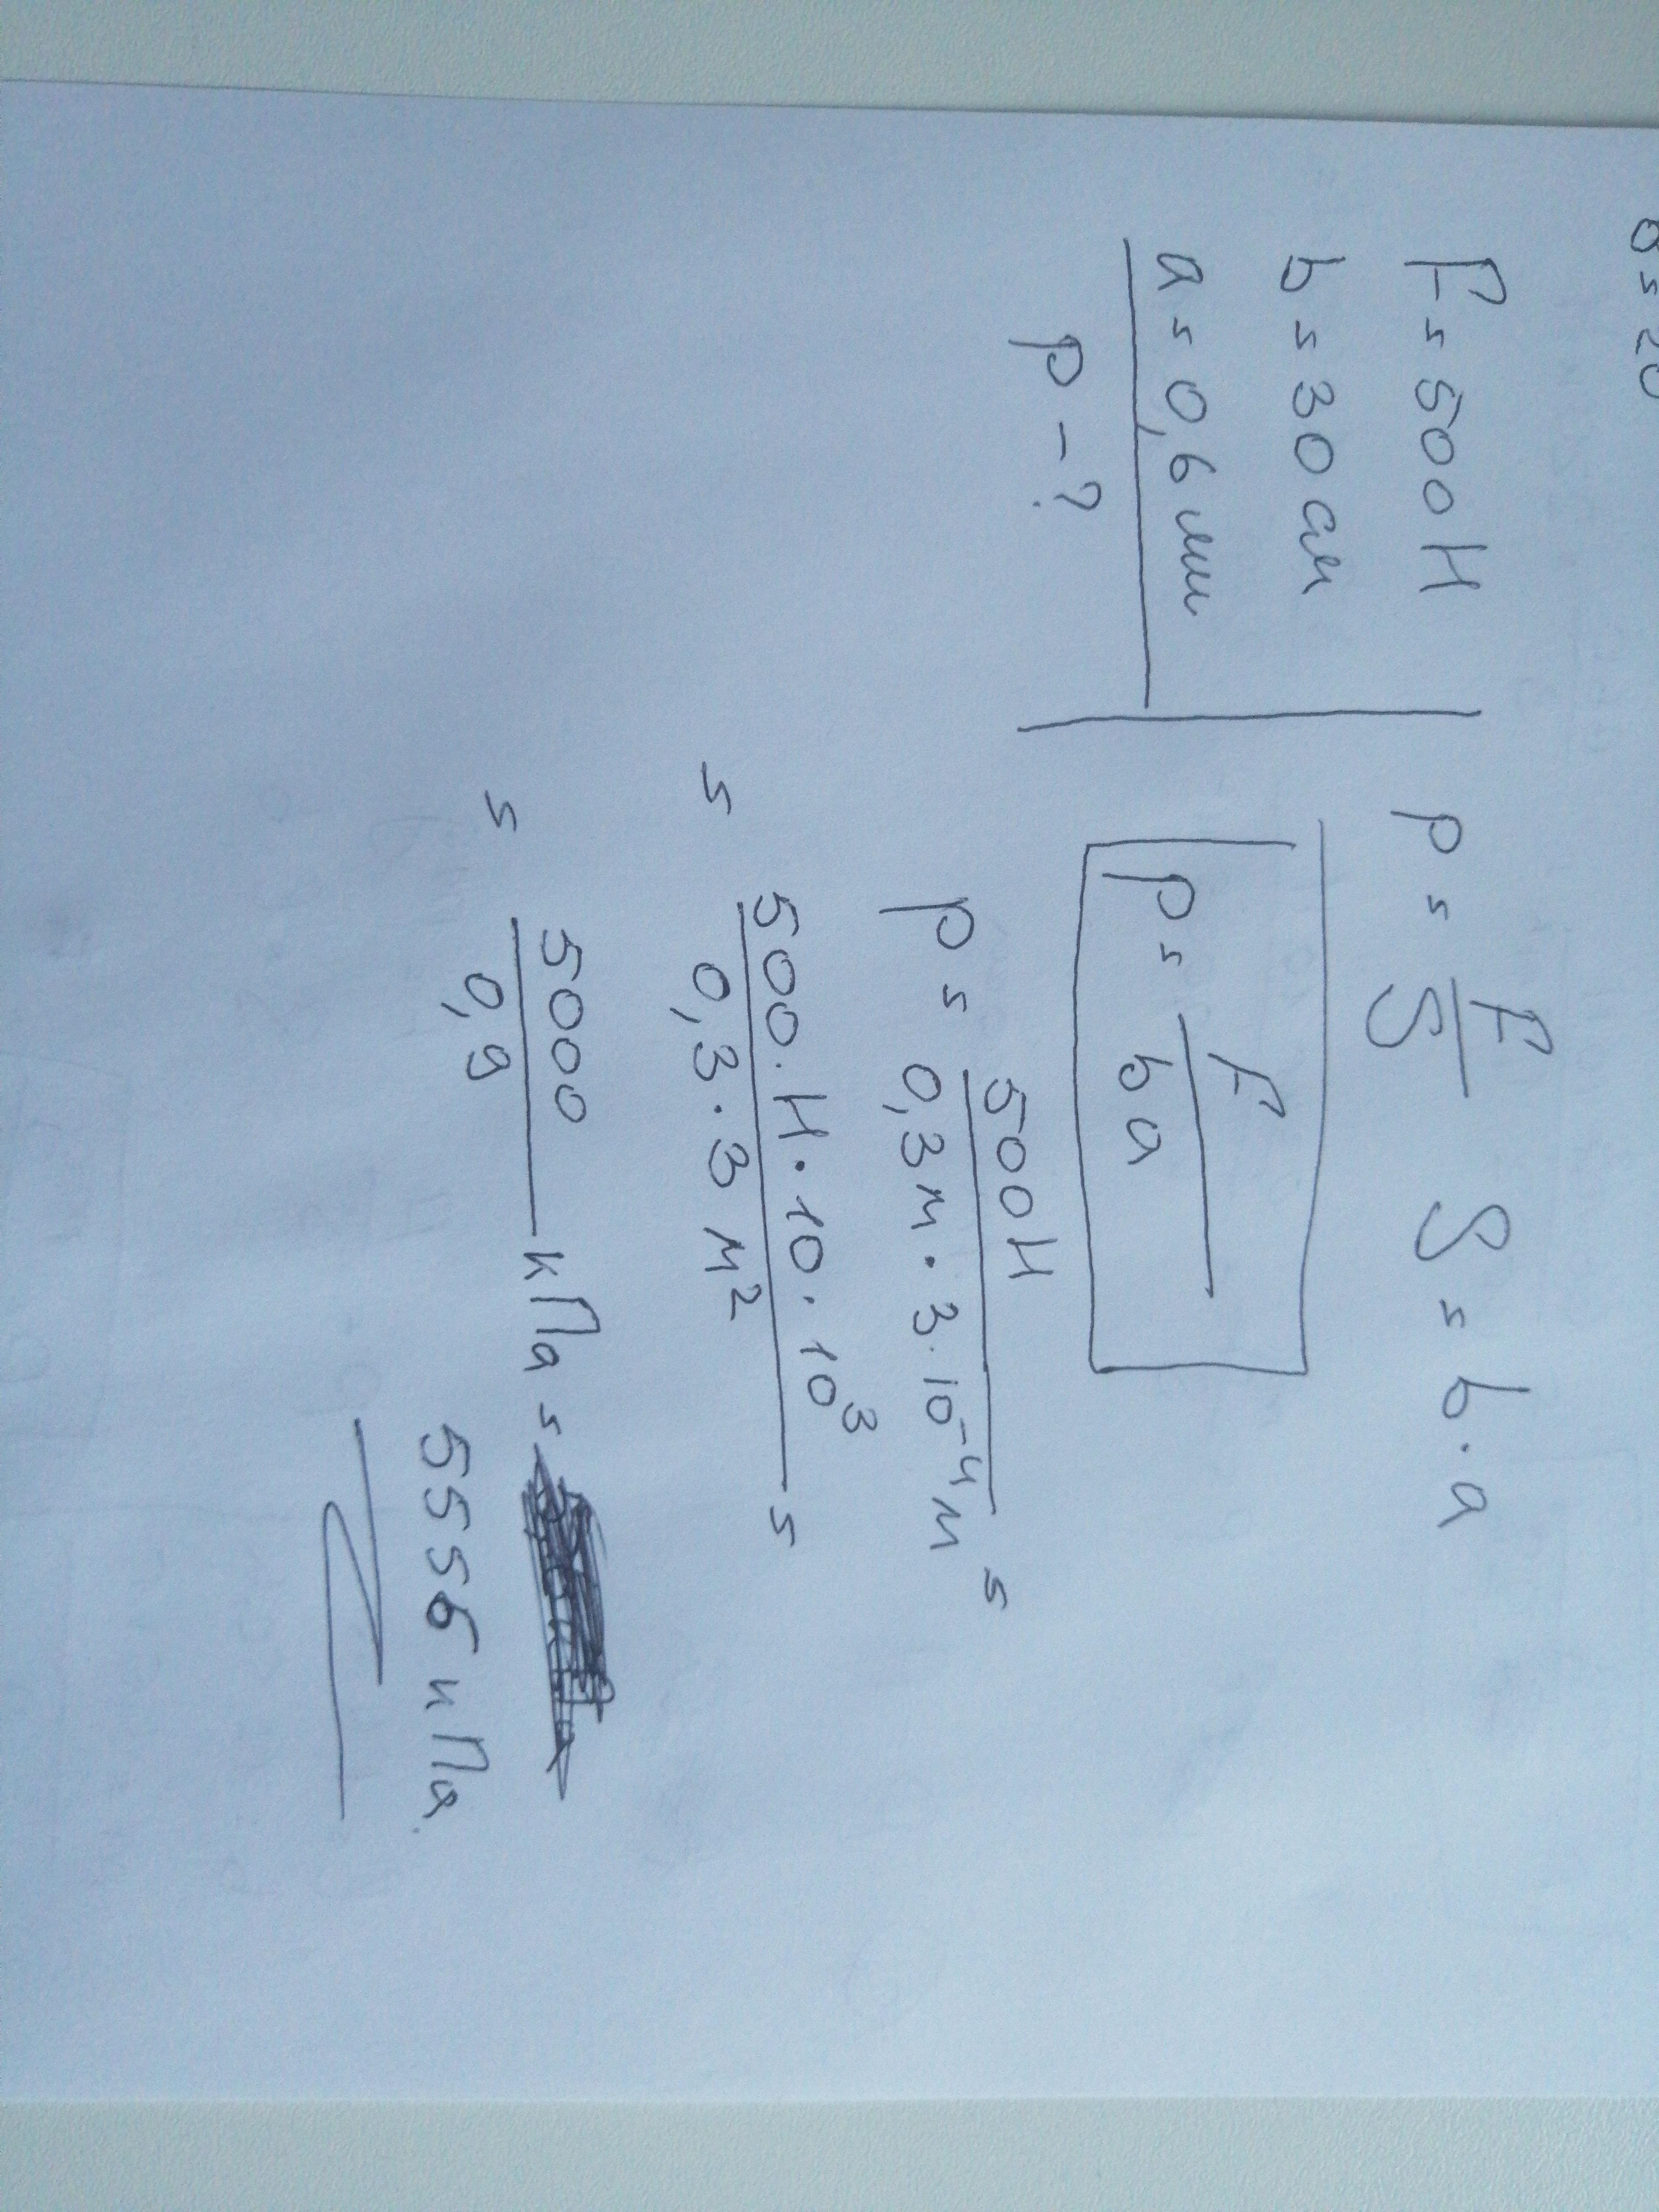 b = 20
F = 500 Н
b = 30 см
a = 0,6 мм
p - ?
p = F/S S = b · a
p = F/ba
p = 500Н/0,3м · 3 · 10⁻⁴м =
= 500 · Н · 10 · 10³/0,3 · 3 м² =
= 5000/0,9 кПа =
5556 кПа.